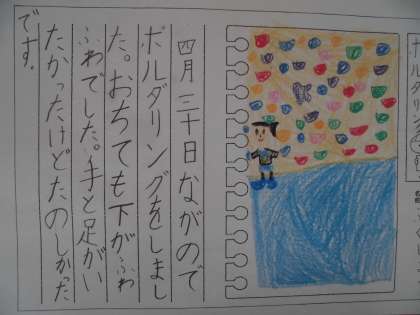 ボルダリング
四月三十日ながので
ボルダリングをしまし
た。おちても下がふわ
ふわでした。手と足がい
たかったけどたのしかった
です。